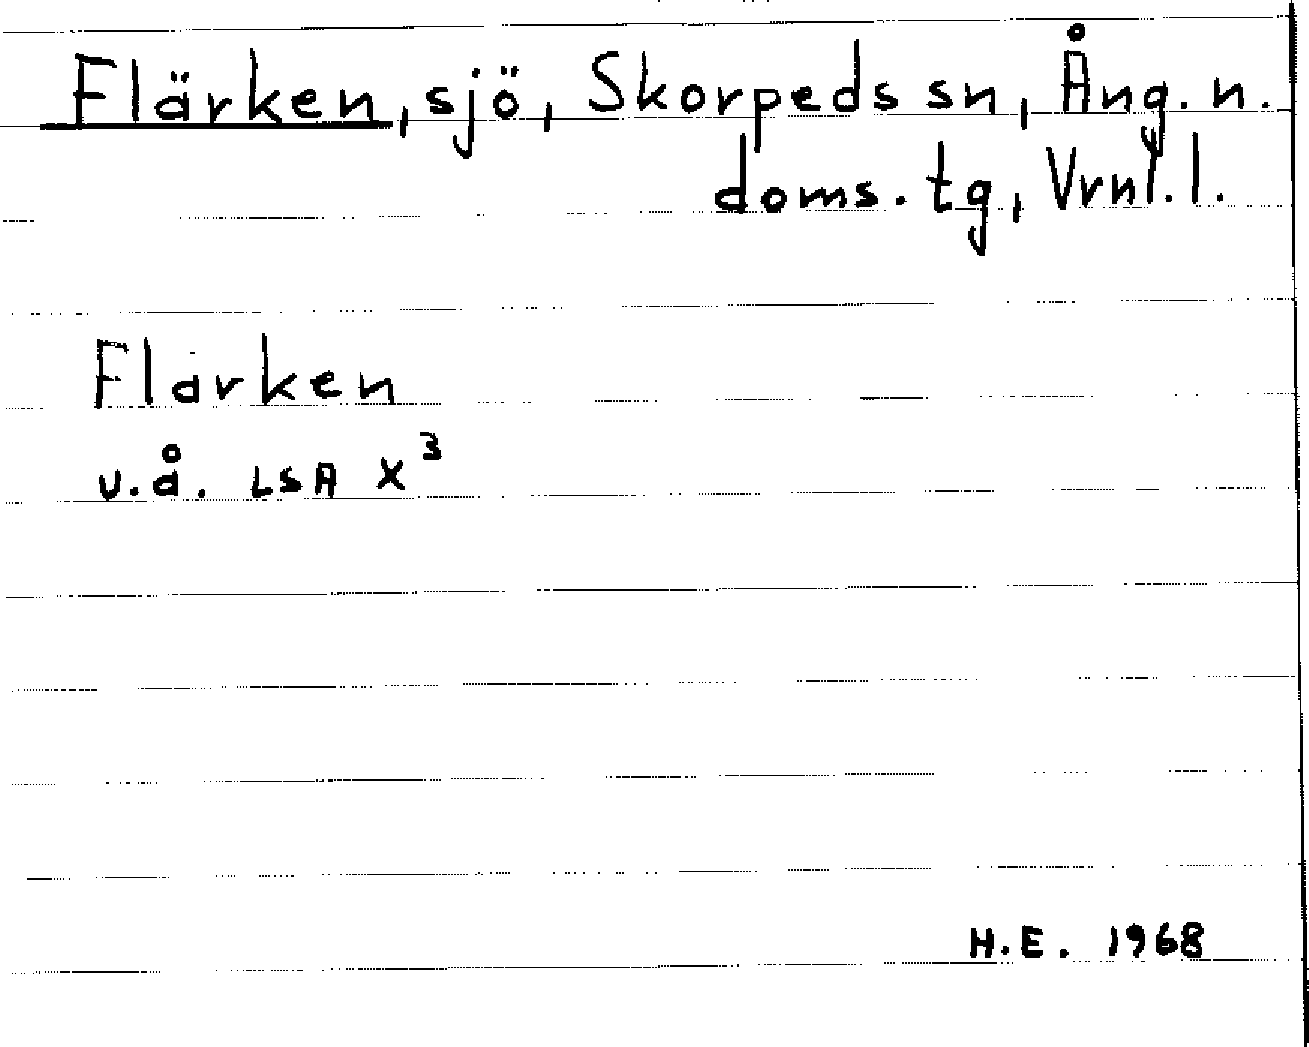 Flärken, sjö, Skorpeds sn, Ång. n.
doms. tg, Vrnl. l.
Flärken
u.å. LSA X³
H.E. 1968